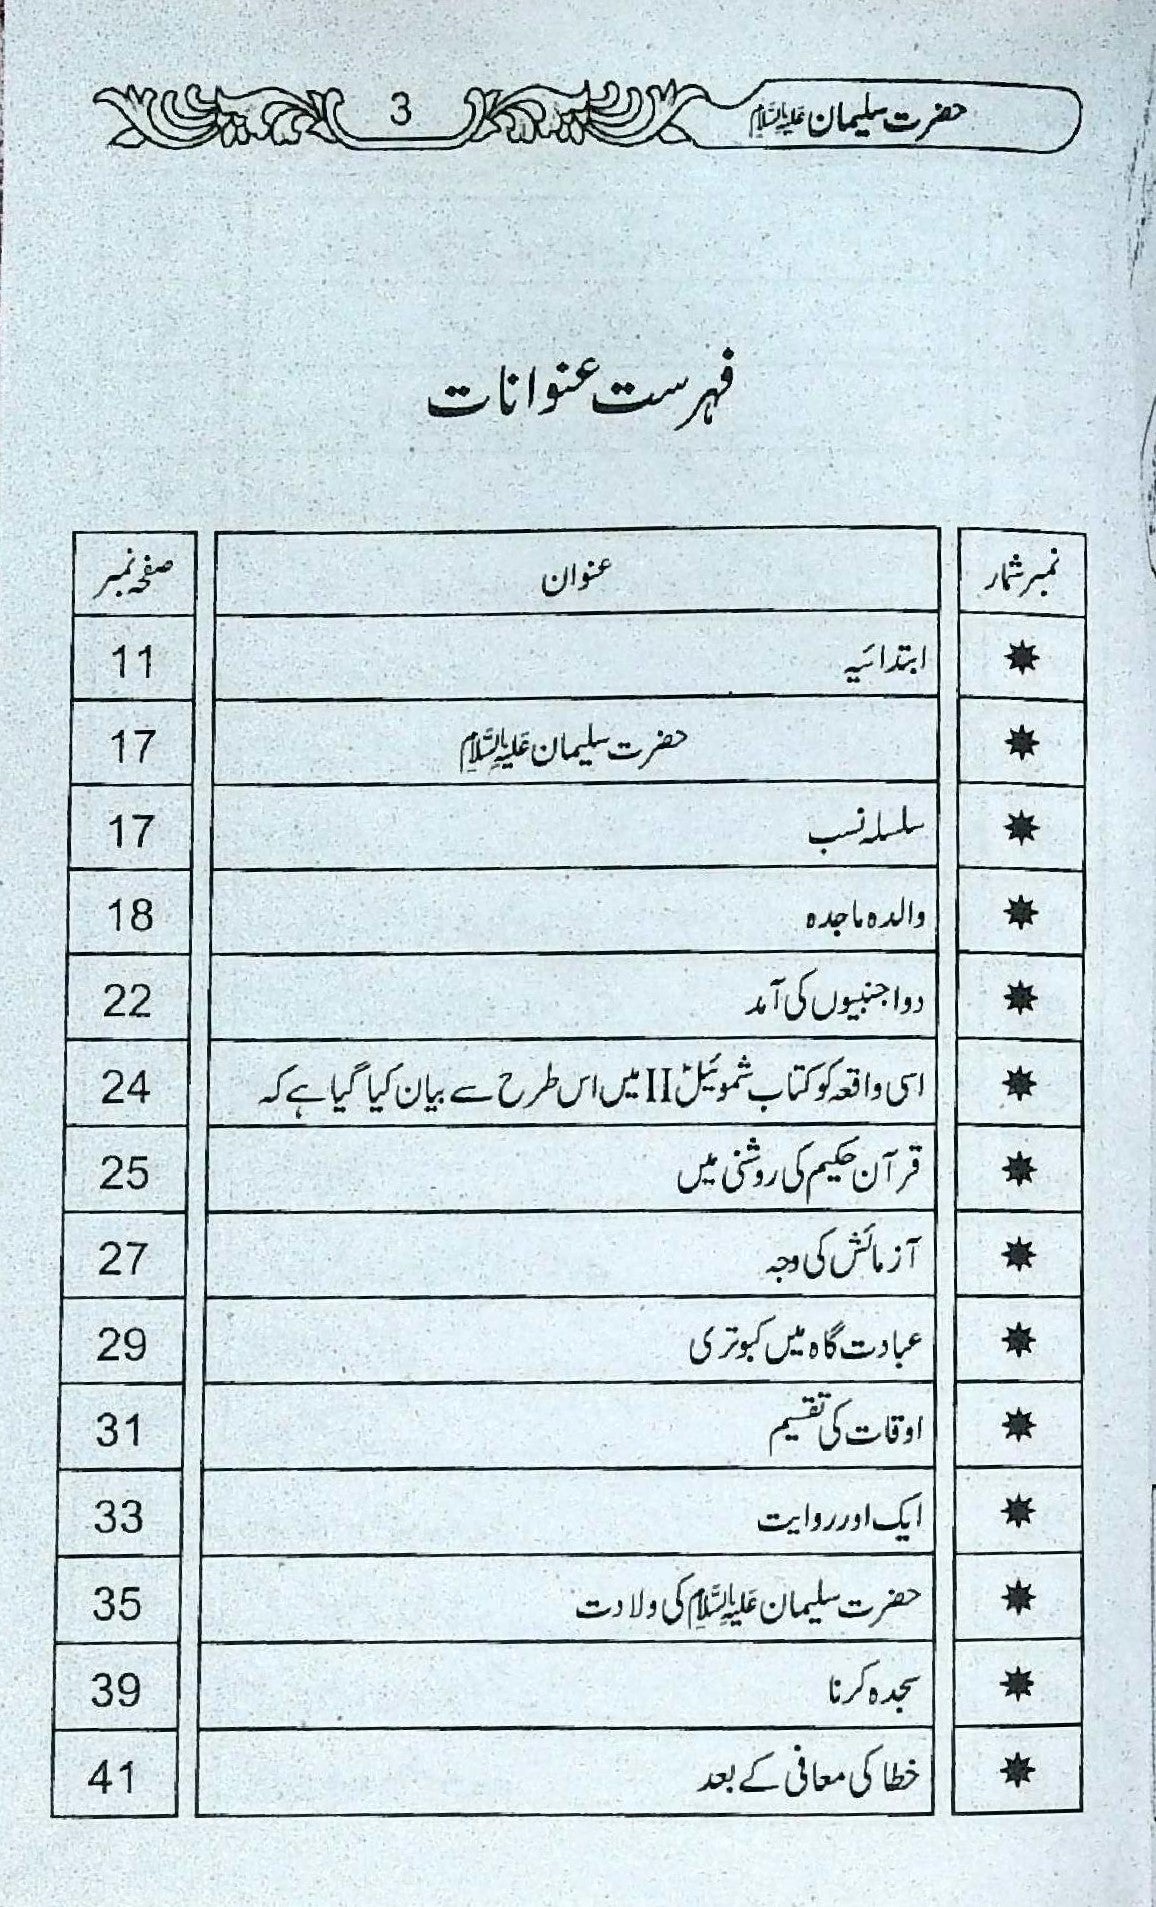 حضرت سلیمان عَلَیْہِ السَّلَام 3
فہرست عنوانات
نمبر شمار عنوان صفحہ نمبر
✷ ابتدائیہ 11
✷ حضرت سلیمان عَلَیْہِ السَّلَام 17
✷ سلسلہ نسب 17
✷ والدہ ماجدہ 18
✷ دو اجنبیوں کی آمد 22
✷ اسی واقعہ کو کتاب شموئیل II میں اس طرح سے بیان کیا گیا ہے کہ 24
✷ قرآن حکیم کی روشنی میں 25
✷ آزمائش کی وجہ 27
✷ عبادت گاہ میں کبوتری 29
✷ اوقات کی تقسیم 31
✷ ایک اور روایت 33
✷ حضرت سلیمان عَلَیْہِ السَّلَام کی ولادت 35
✷ سجدہ کرنا 39
✷ خطا کی معافی کے بعد 41